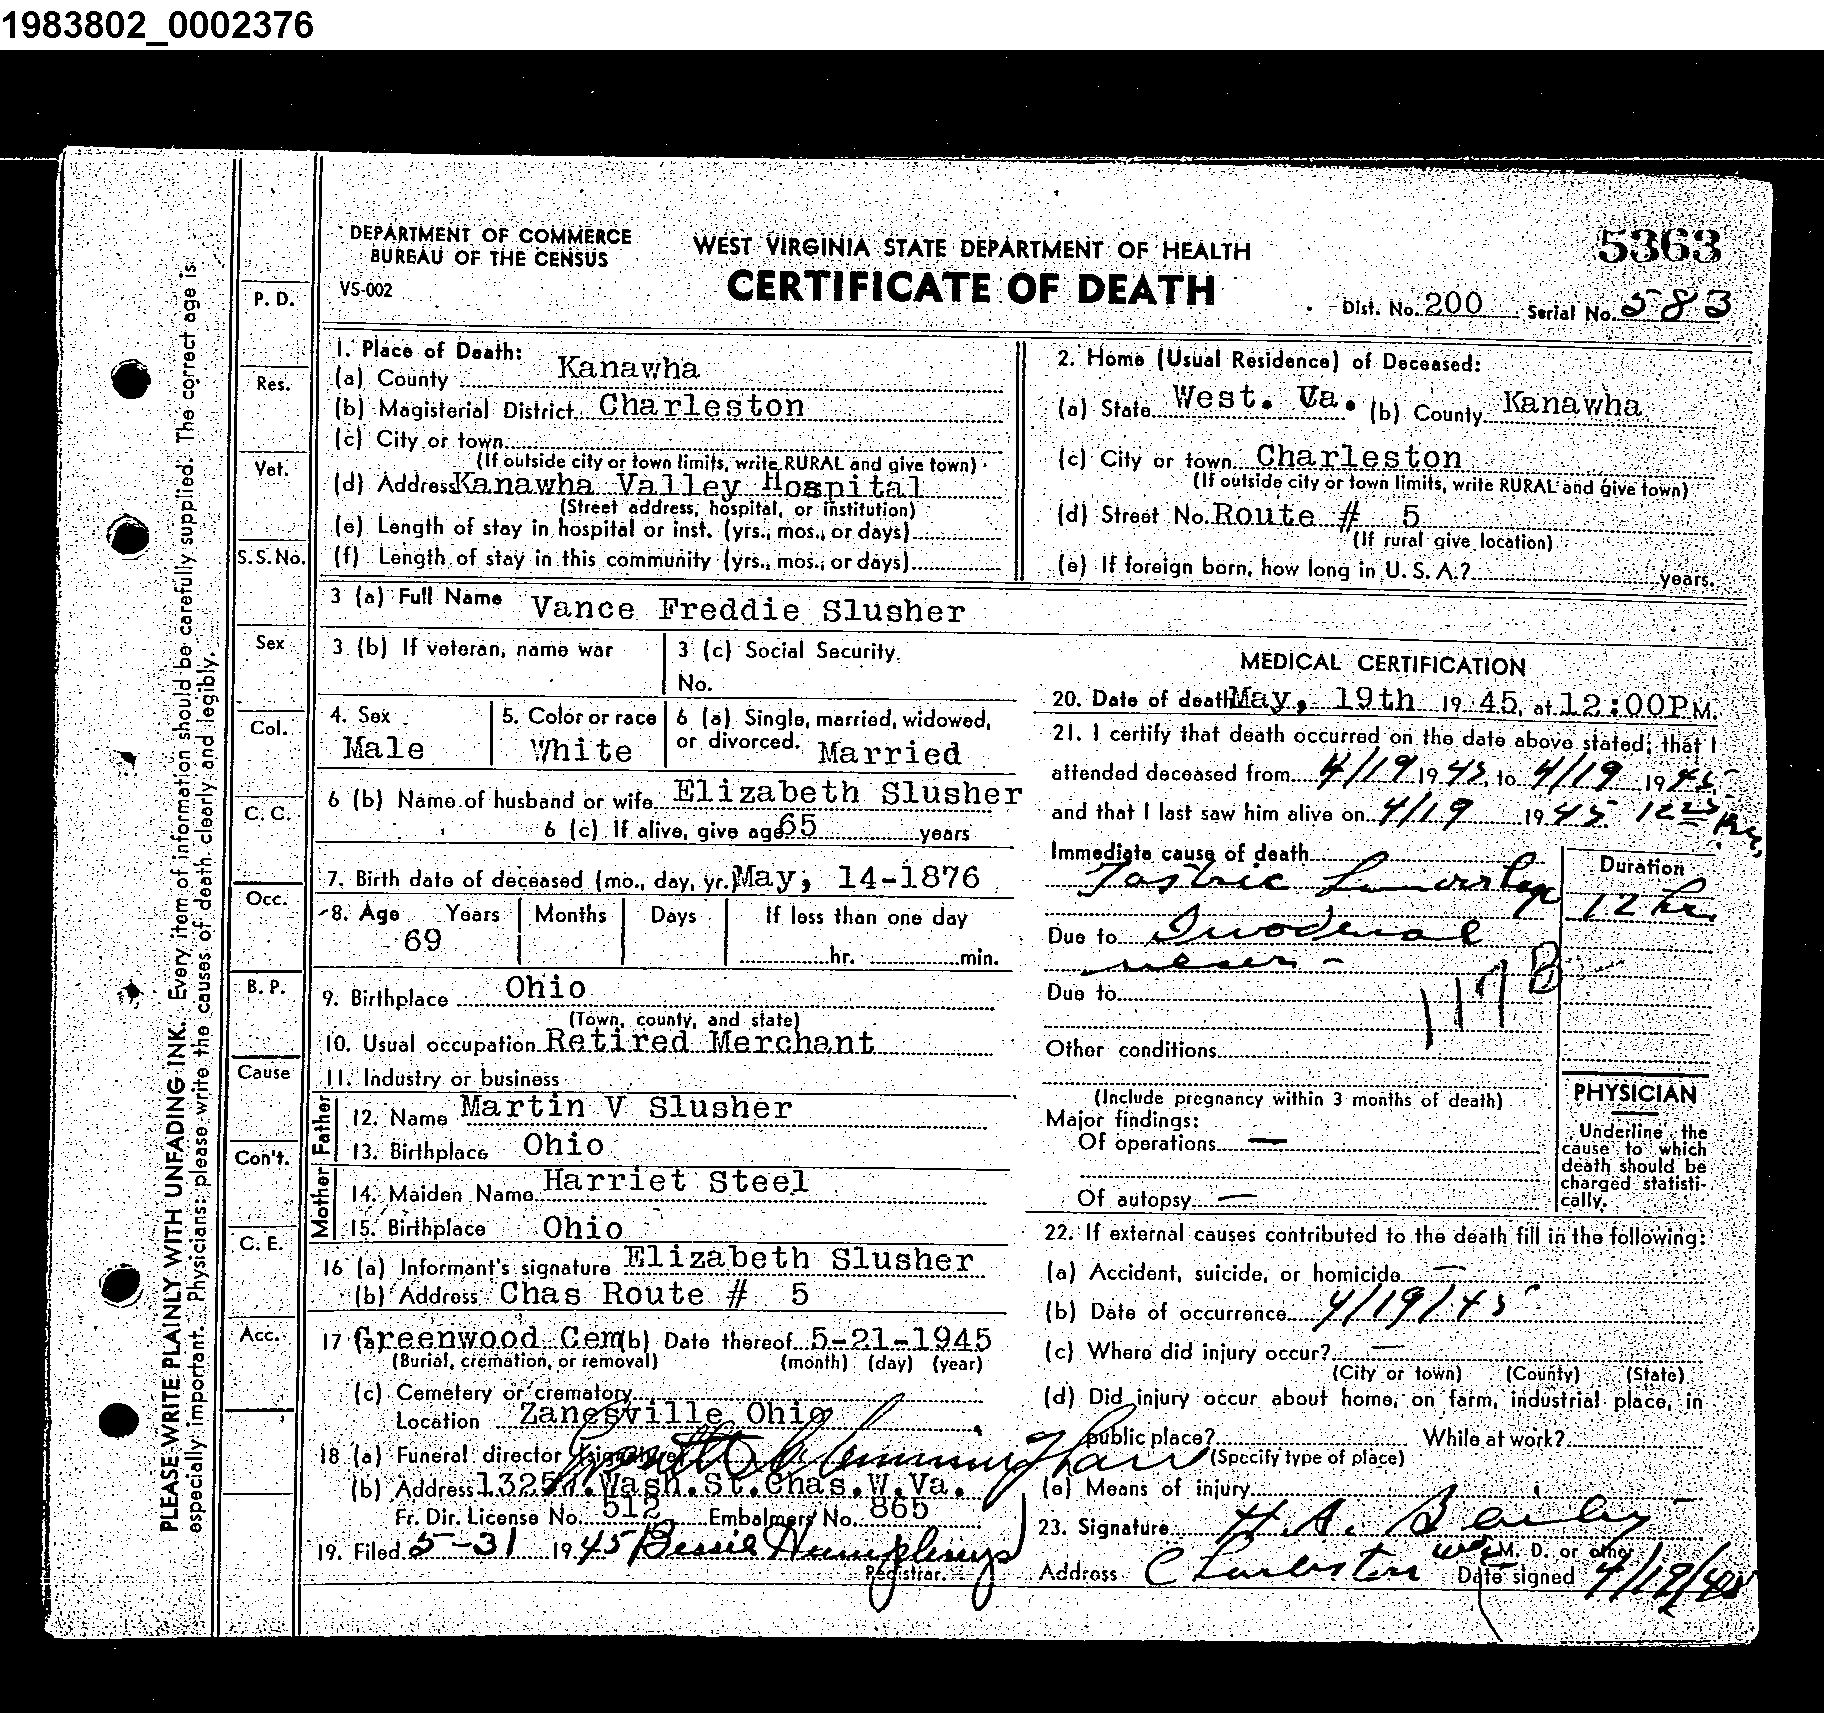 1983802_0002376
DEPARTMENT OF COMMERCE
BUREAU OF THE CENSUS
VS-002
WEST VIRGINIA STATE DEPARTMENT OF HEALTH
CERTIFICATE OF DEATH
5363
Dist. No. 200 Serial No. 583
PLEASE WRITE PLAINLY WITH UNFADING INK. Every item of information should be carefully supplied. The correct age is
especially important. Physicians: please write the causes of death clearly and legibly.
P. D.
Res.
Vet.
S.S. No.
Sex
Col.
C. C.
Occ.
B. P.
Cause
Con't.
C. E.
Acc.
1. Place of Death:
(a) County Kanawha
(b) Magisterial District Charleston
(c) City or town
(If outside city or town limits, write RURAL and give town)
(d) Address Kanawha Valley Hospital
(Street address, hospital, or institution)
(e) Length of stay in hospital or inst. (yrs., mos., or days)
(f) Length of stay in this community (yrs., mos., or days)
2. Home (Usual Residence) of Deceased:
(a) State West. Va. (b) County Kanawha
(c) City or town Charleston
(If outside city or town limits, write RURAL and give town)
(d) Street No. Route # 5
(If rural give location)
(e) If foreign born, how long in U. S. A.? years.
3 (a) Full Name Vance Freddie Slusher
3 (b) If veteran, name war
3 (c) Social Security
No.
4. Sex Male
5. Color or race White
6 (a) Single, married, widowed,
or divorced. Married
6 (b) Name of husband or wife Elizabeth Slusher
6 (c) If alive, give age 65 years
7. Birth date of deceased (mo., day, yr.) May, 14-1876
8. Age Years Months Days If less than one day
69 hr. min.
9. Birthplace Ohio
(Town, county, and state)
10. Usual occupation Retired Merchant
11. Industry or business
Father
12. Name Martin V Slusher
13. Birthplace Ohio
Mother
14. Maiden Name Harriet Steel
15. Birthplace Ohio
16 (a) Informant's signature Elizabeth Slusher
(b) Address Chas Route # 5
17 (a) Greenwood Cem (b) Date thereof 5-21-1945
(Burial, cremation, or removal) (month) (day) (year)
(c) Cemetery or crematory
Location Zanesville Ohio
18 (a) Funeral director (signature) Cunningham
(b) Address 1325 W. Wash. St. Chas. W. Va.
Fr. Dir. License No. 512 Embalmers No. 865
19. Filed 5-31 1945 Bessie Humphreys
Registrar.
MEDICAL CERTIFICATION
20. Date of death May, 19th 1945, at 12:00P M.
21. I certify that death occurred on the date above stated; that I
attended deceased from 4/19 1945, to 4/19 1945
and that I last saw him alive on 4/19 1945
Immediate cause of death
Duration
12 hr.
Due to Duodenal
ulcer -
117 B
Due to
Other conditions
(Include pregnancy within 3 months of death)
Major findings:
Of operations —
Of autopsy —
PHYSICIAN
Underline the
cause to which
death should be
charged statisti-
cally.
22. If external causes contributed to the death fill in the following:
(a) Accident, suicide, or homicide —
(b) Date of occurrence 4/19/45
(c) Where did injury occur? —
(City or town) (County) (State)
(d) Did injury occur about home, on farm, industrial place, in
public place? While at work?
(Specify type of place)
(e) Means of injury
23. Signature H. A. Bailey
M. D. or other
Address Charleston Date signed 4/19/45